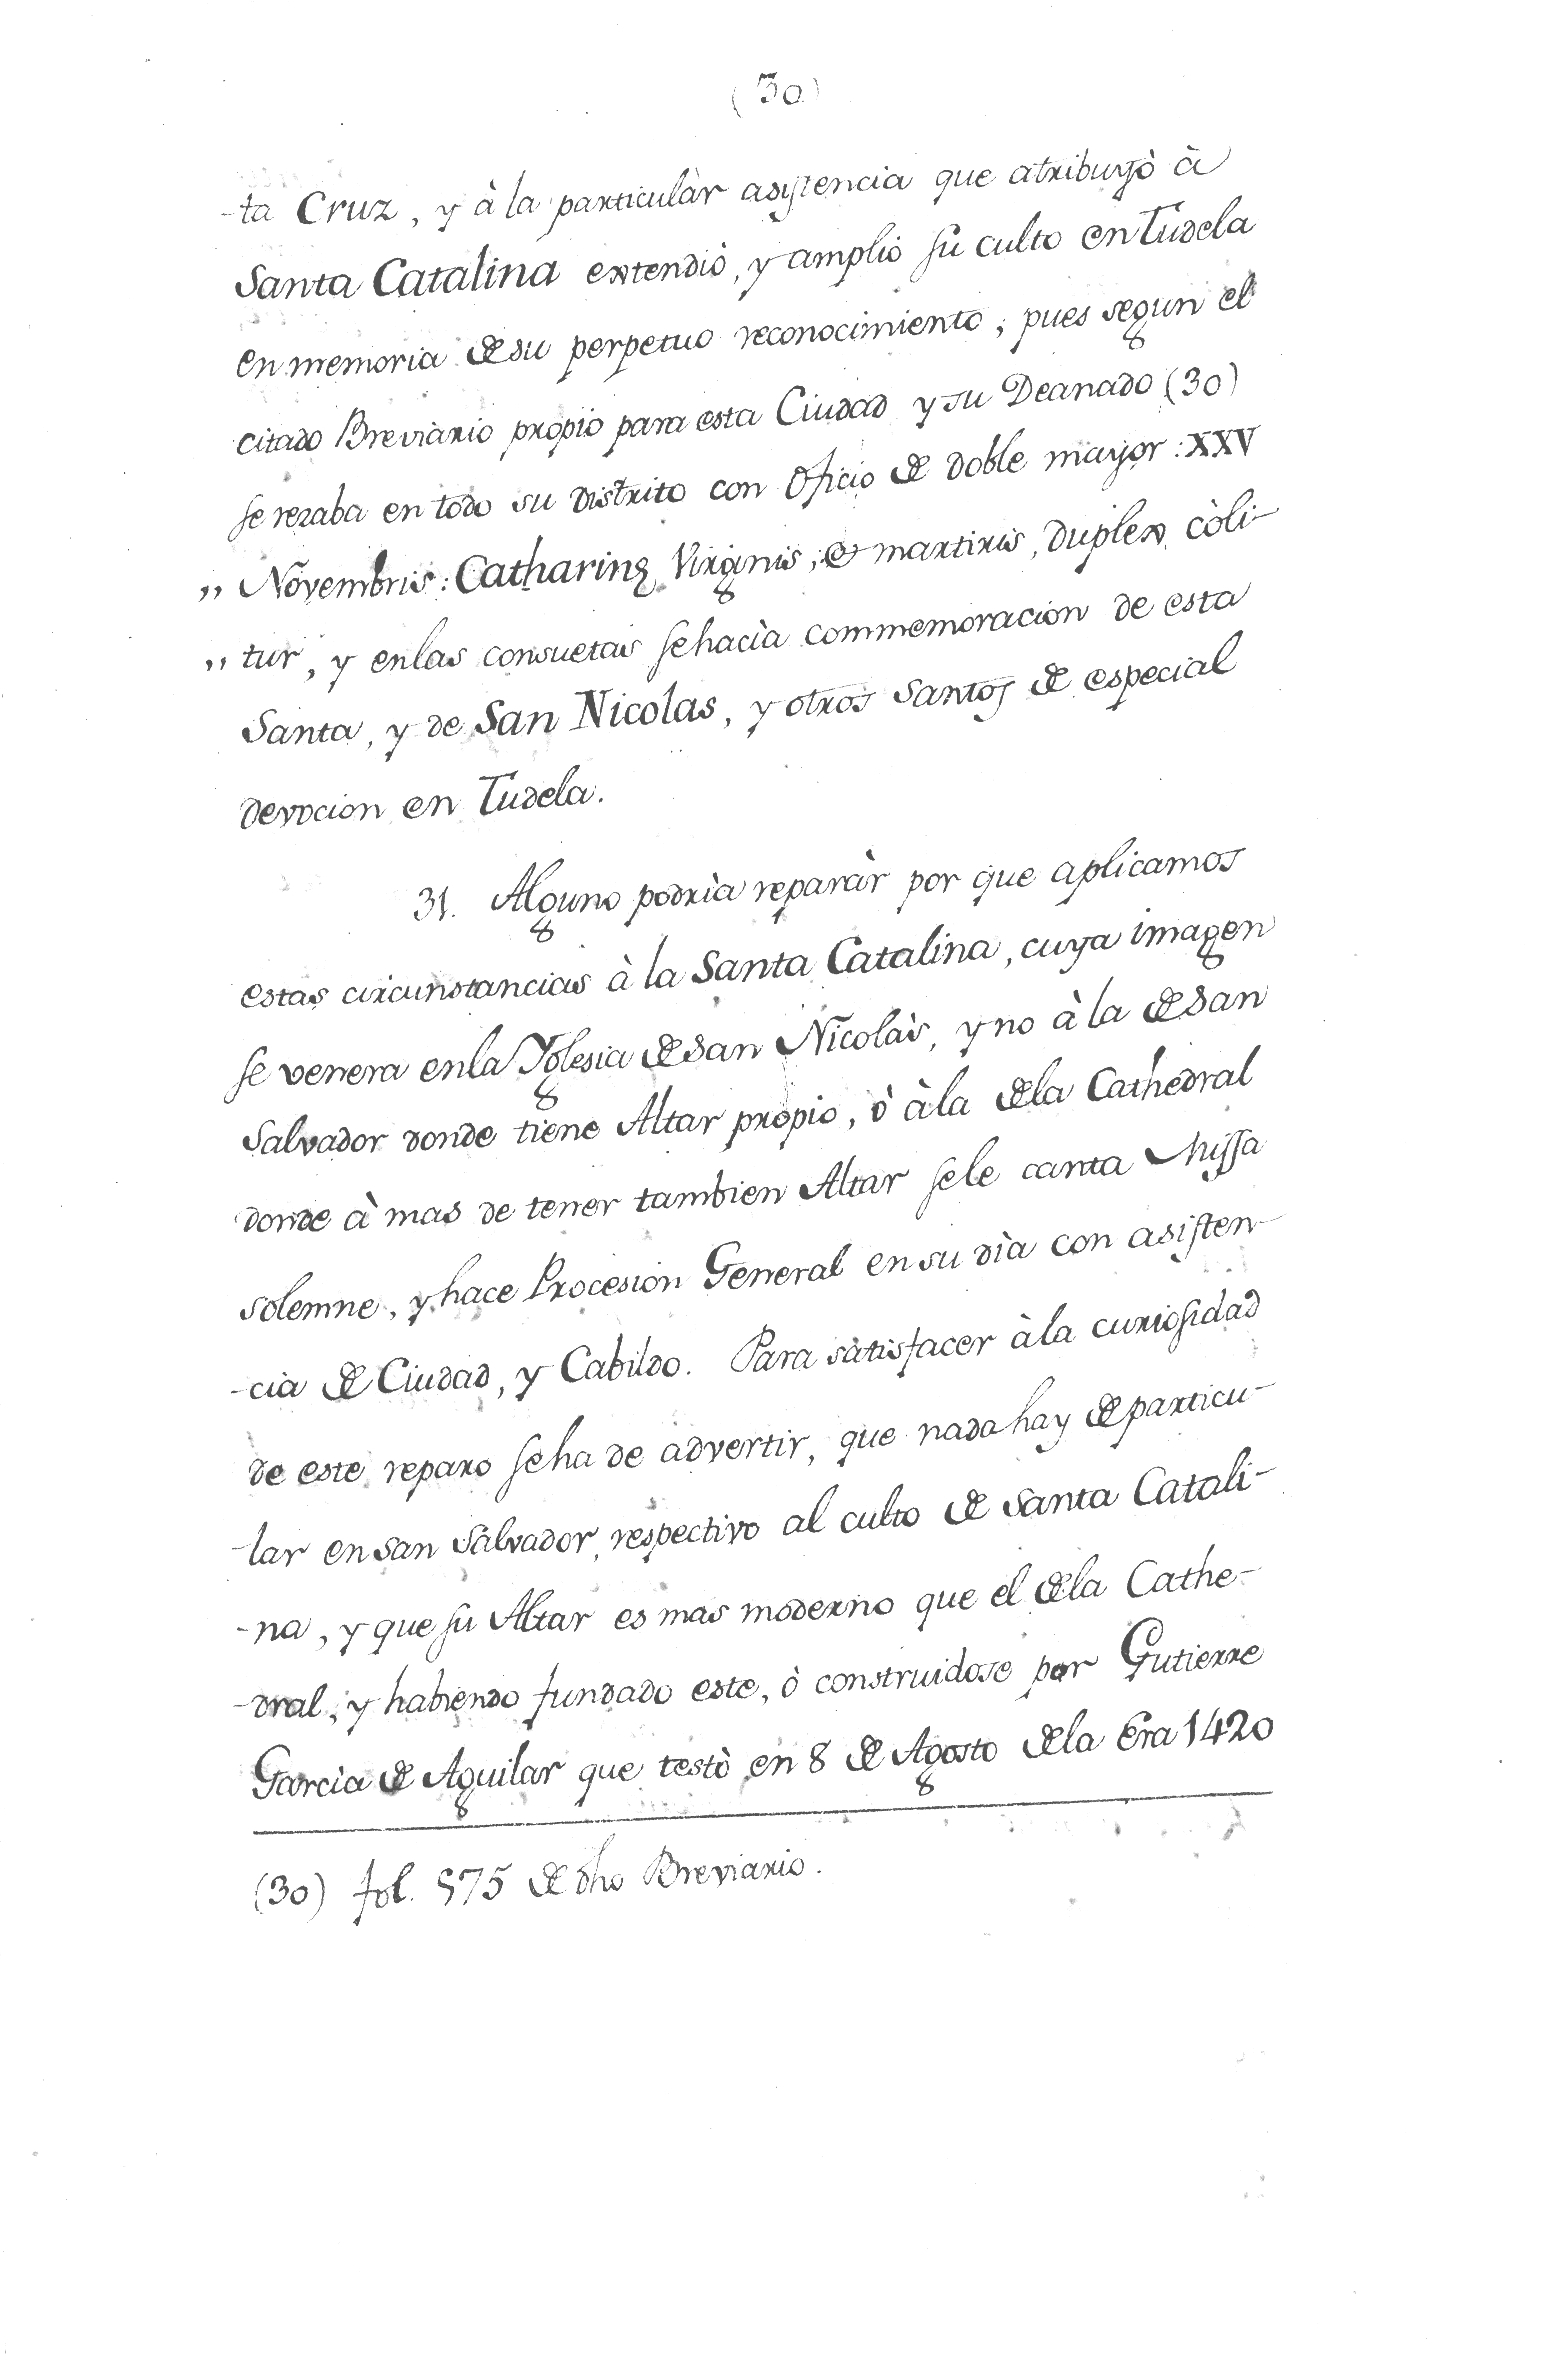 (30)
-ta Cruz, y à la particulàr asistencia que atribuyò à
Santa Catalina extendiò, y ampliò su culto en Tudela
en memoria de su perpetuo reconocimiento; pues segun el
citado Breviario propio para esta Ciudad y su Deanado (30)
se rezaba en todo su distrito con Oficio de doble mayor: XXV
,, Novembris: Catharinę Virginis, et martiris, duplex còli-
,, tur, y en las consuetas se hacìa commemoracion de esta
Santa, y de San Nicolas, y otros Santos de especial
devocion en Tudela.
31. Alguno podrìa reparàr por que aplicamos
estas circunstancias à la Santa Catalina, cuya imagen
se venera en la Yglesia de San Nicolàs, y no à la de San
Salvador donde tiene Altar propio, ò à la de la Cathedral
donde à mas de tener tambien Altar se le canta Missa
solemne, y hace Procesion General en su dìa con asisten-
-cia de Ciudad, y Cabildo. Para satisfacer à la curiosidad
de este reparo se ha de advertir, que nada hay de particu-
-lar en San Salvador, respectivo al culto de Santa Catali-
-na, y que su Altar es mas moderno que el de la Cathe-
-dral, y habiendo fundado este, ò construidose por Gutierre
Garcìa de Aguilar que testò en 8 de Agosto de la Era 1420
(30) fol. 575 de dho Breviario.